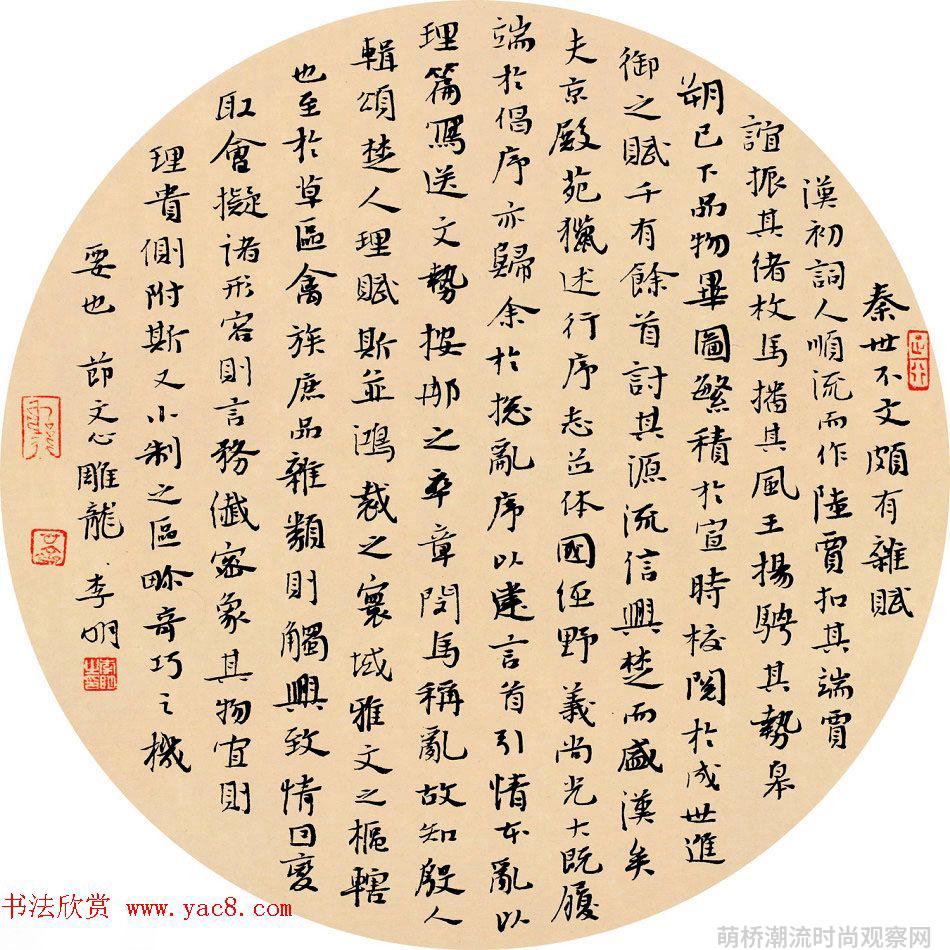 秦世不文頗有雜賦
漢初詞人順流而作陸賈扣其端賈
誼振其緒枚馬播其風王揚騁其勢皋
朔已下品物畢圖繁積於宣時校閱於成世進
御之賦千有餘首討其源流信興楚而盛漢矣
夫京殿苑獵述行序志並体國經野義尚光大既履
端於倡序亦歸余於揔亂序以建言首引情本亂以
理篇寫送文勢按那之卒章閔馬稱亂故知殷人
輯頌楚人理賦斯並鴻裁之寰域雅文之樞轄
也至於草區禽族庶品雜類則觸興致情因變
取會擬諸形容則言務纖密象其物宜則
理貴側附斯又小制之區畛奇巧之機
要也 節文心雕龍 李明
书法欣赏 www.yac8.com
萌桥潮流时尚观察网